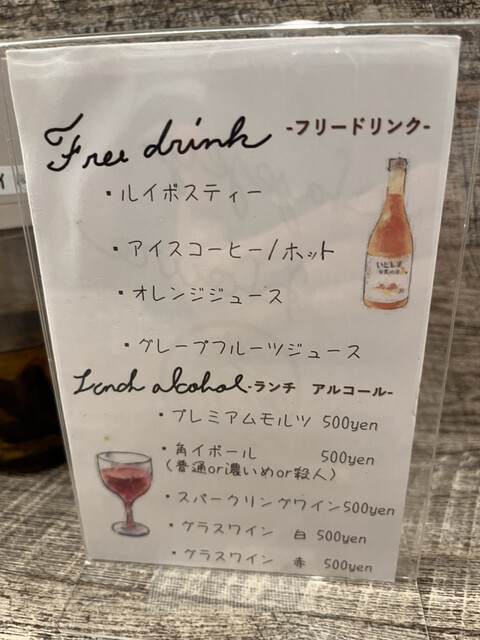 Free drink -フリードリンク-
・ルイボスティー
・アイスコーヒー/ホット
・オレンジジュース
・グレープフルーツジュース
Lunch alcohol -ランチ アルコール-
・プレミアムモルツ 500yen
・角イボール 500yen
(普通or濃いめor殺人)
・スパークリングワイン500yen
・グラスワイン 白 500yen
・グラスワイン 赤 500yen